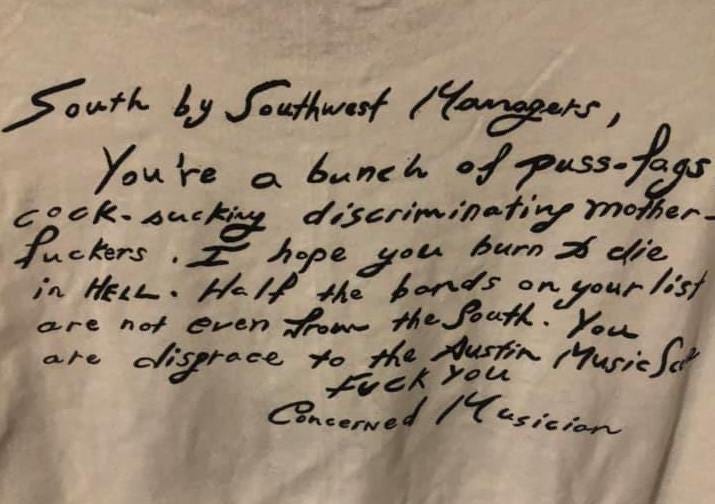 South by Southwest Managers,
You're a bunch of puss-fags
cock-sucking discriminating mother-
fuckers. I hope you burn & die
in HELL. Half the bands on your list
are not even from the South. You
are disgrace to the Austin Music
FUCK YOU
Concerned Musician